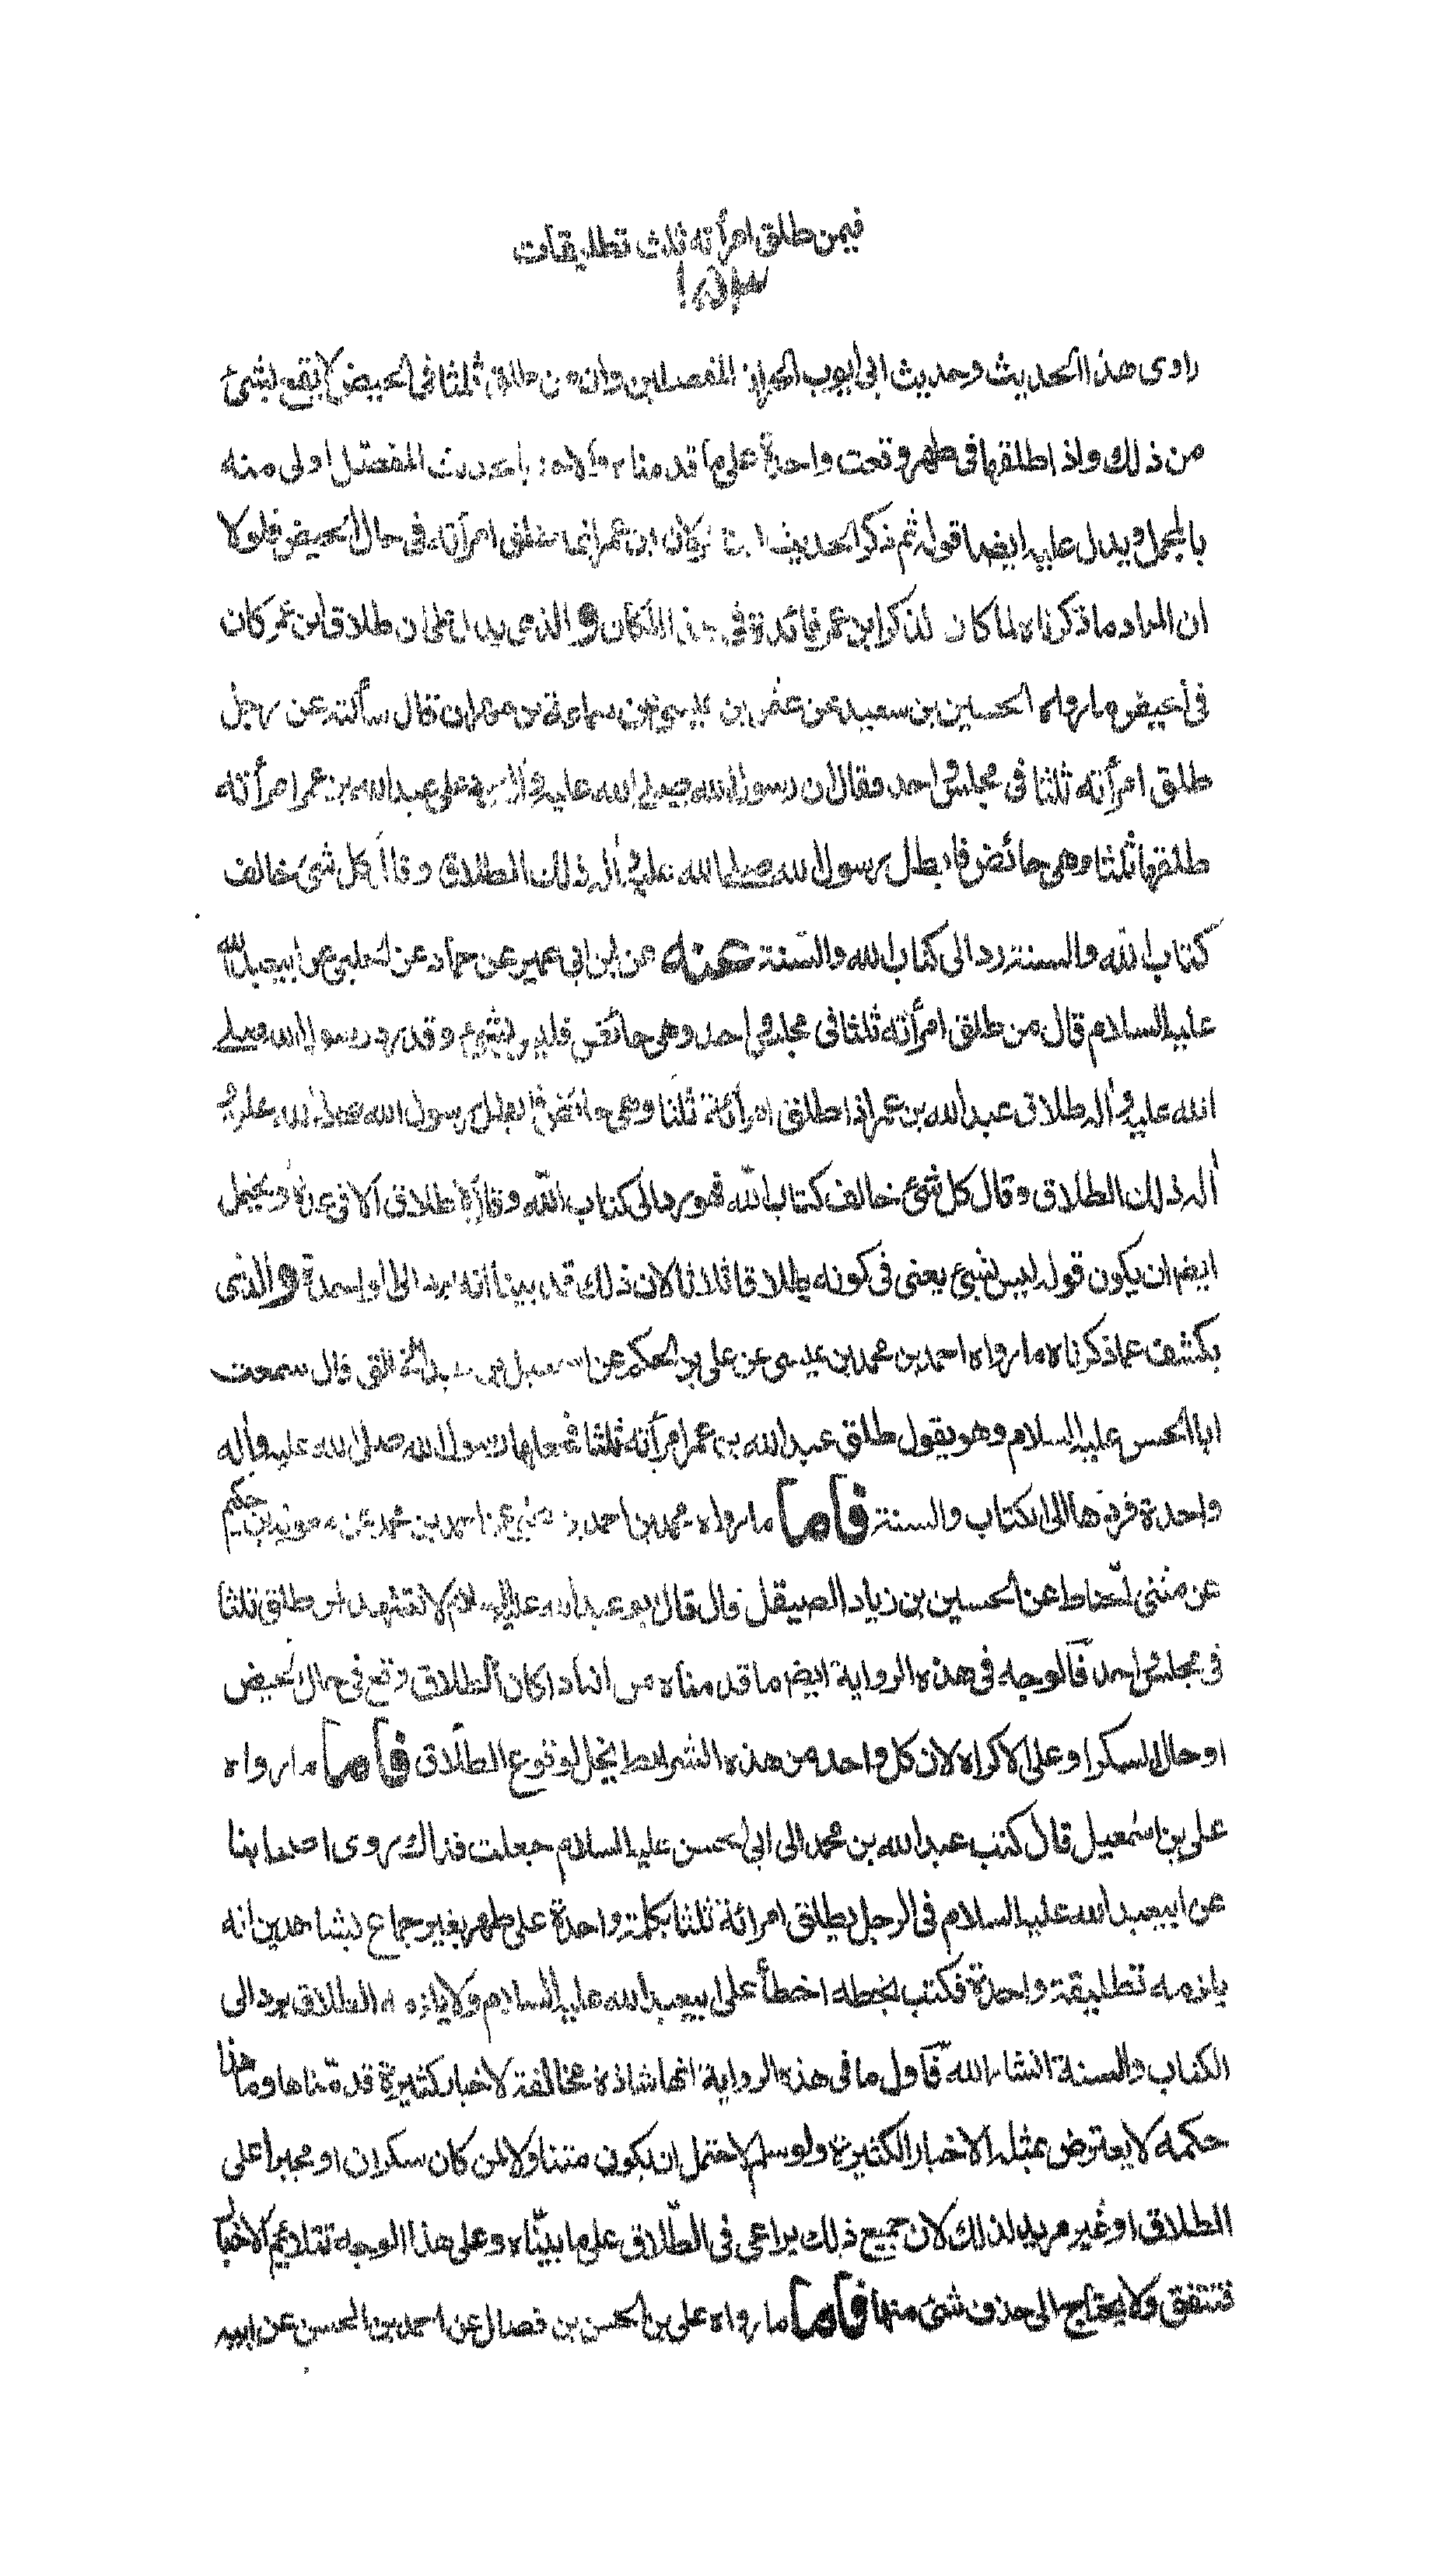 فيمن طلق امرأته ثلث تطليقات
راوى هذا الحديث وحديث ابى ايوب الخزاز المفصلين وان من طلق ثلثا فى الحيض لا يقع بشئ
من ذلك واذا طلقها فى طهر وقعت واحدة على ما قدمناه والاخذ بالحديث المفصّل اولى منه
بالمجمل ويدل عليه ايضا قوله ثم ذكر الحديث ابن عمر انما طلق امرأته فى حال الحيض فلولا
ان المراد ما ذكرناه لما كان لذكر ابن عمر فائدة فى هذا المكان والذى يدل على ان طلاق ابن عمر كان
فى الحيض ما رواه الحسين بن سعيد عن عثمن بن عيسى عن سماعة بن مهران قال سألته عن رجل
طلق امرأته ثلثا فى مجلس واحد فقال ان رسول الله صلى الله عليه وآله رد على عبد الله بن عمر امرأته
طلقها ثلثا وهى حائض فابطل رسول الله صلى الله عليه وآله ذلك الطلاق وقال كل شئ خالف
كتاب الله والسنة رد الى كتاب الله والسنة عنه عن ابن ابى عمير عن حماد عن الحلبى عن ابيعبد الله
عليه السلام قال من طلق امرأته ثلثا فى مجلس واحد وهى حائض فليس بشئ وقد رد رسول الله صلى
الله عليه وآله طلاق عبد الله بن عمر اذا طلق امرأته ثلثا وهى حائض فابطل رسول الله صلى الله عليه و
آله ذلك الطلاق وقال كل شئ خالف كتاب الله فهو رد الى كتاب الله وقال لا طلاق الا فى عدة ويحتمل
ايضا ان يكون قوله ليس بشئ يعنى فى كونه طلاقا ثلاثا لان ذلك قد بينا انه يرد الى واحدة والذى
يكشف عما ذكرناه ما رواه احمد بن محمد بن عيسى عن على بن الحكم عن قال سمعت
ابا الحسن عليه السلام وهو يقول طلق عبد الله بن عمر امرأته ثلثا فجعلها رسول الله صلى الله عليه وآله
واحدة فردها الى الكتاب والسنة فاما ما رواه محمد بن احمد بن يحيى عن احمد بن محمد عن معوية بن حكيم
عن مثنى الحناط عن الحسين بن زياد الصيقل قال قال ابو عبد الله عليه السلام لا تشهد لمن طلق ثلثا
فى مجلس واحد فالوجه فى هذه الرواية ايضا ما قدمناه من انه اذا كان الطلاق وقع فى حال الحيض
او حال السكر او على الاكراه لان كل واحد من هذه الشرايط يخل لوقوع الطلاق فاما ما رواه
على بن اسمعيل قال كتب عبد الله بن محمد الى ابى الحسن عليه السلام جعلت فداك روى اصحابنا
عن ابيعبد الله عليه السلام فى الرجل يطلق امرائة ثلثا بكلمة واحدة على طهر بغير جماع بشاهدين انه
يلزمه تطليقة واحدة فكتب بخطه اخطأ على ابيعبد الله عليه السلام ولا يلزمه الطلاق يرد الى
الكتاب والسنة انشاء الله فاول ما فى هذه الرواية انها شاذة مخالفة لاخبار كثيرة قدمناها وما هذا
حكمه لا يعترض بمثله الاخبار الكثيرة ولو سلم لاحتمل ان يكون متناولا لمن كان سكران او مجبرا على
الطلاق او غير مريد لذلك لان جميع ذلك يراعى فى الطلاق على ما بينّاه وعلى هذا الوجه تتلائم الاخبار
فتتفق ولا يحتاج الى حذف شئ منها فاما ما رواه على بن الحسن بن فضال عن احمد بن الحسن عن ابيه